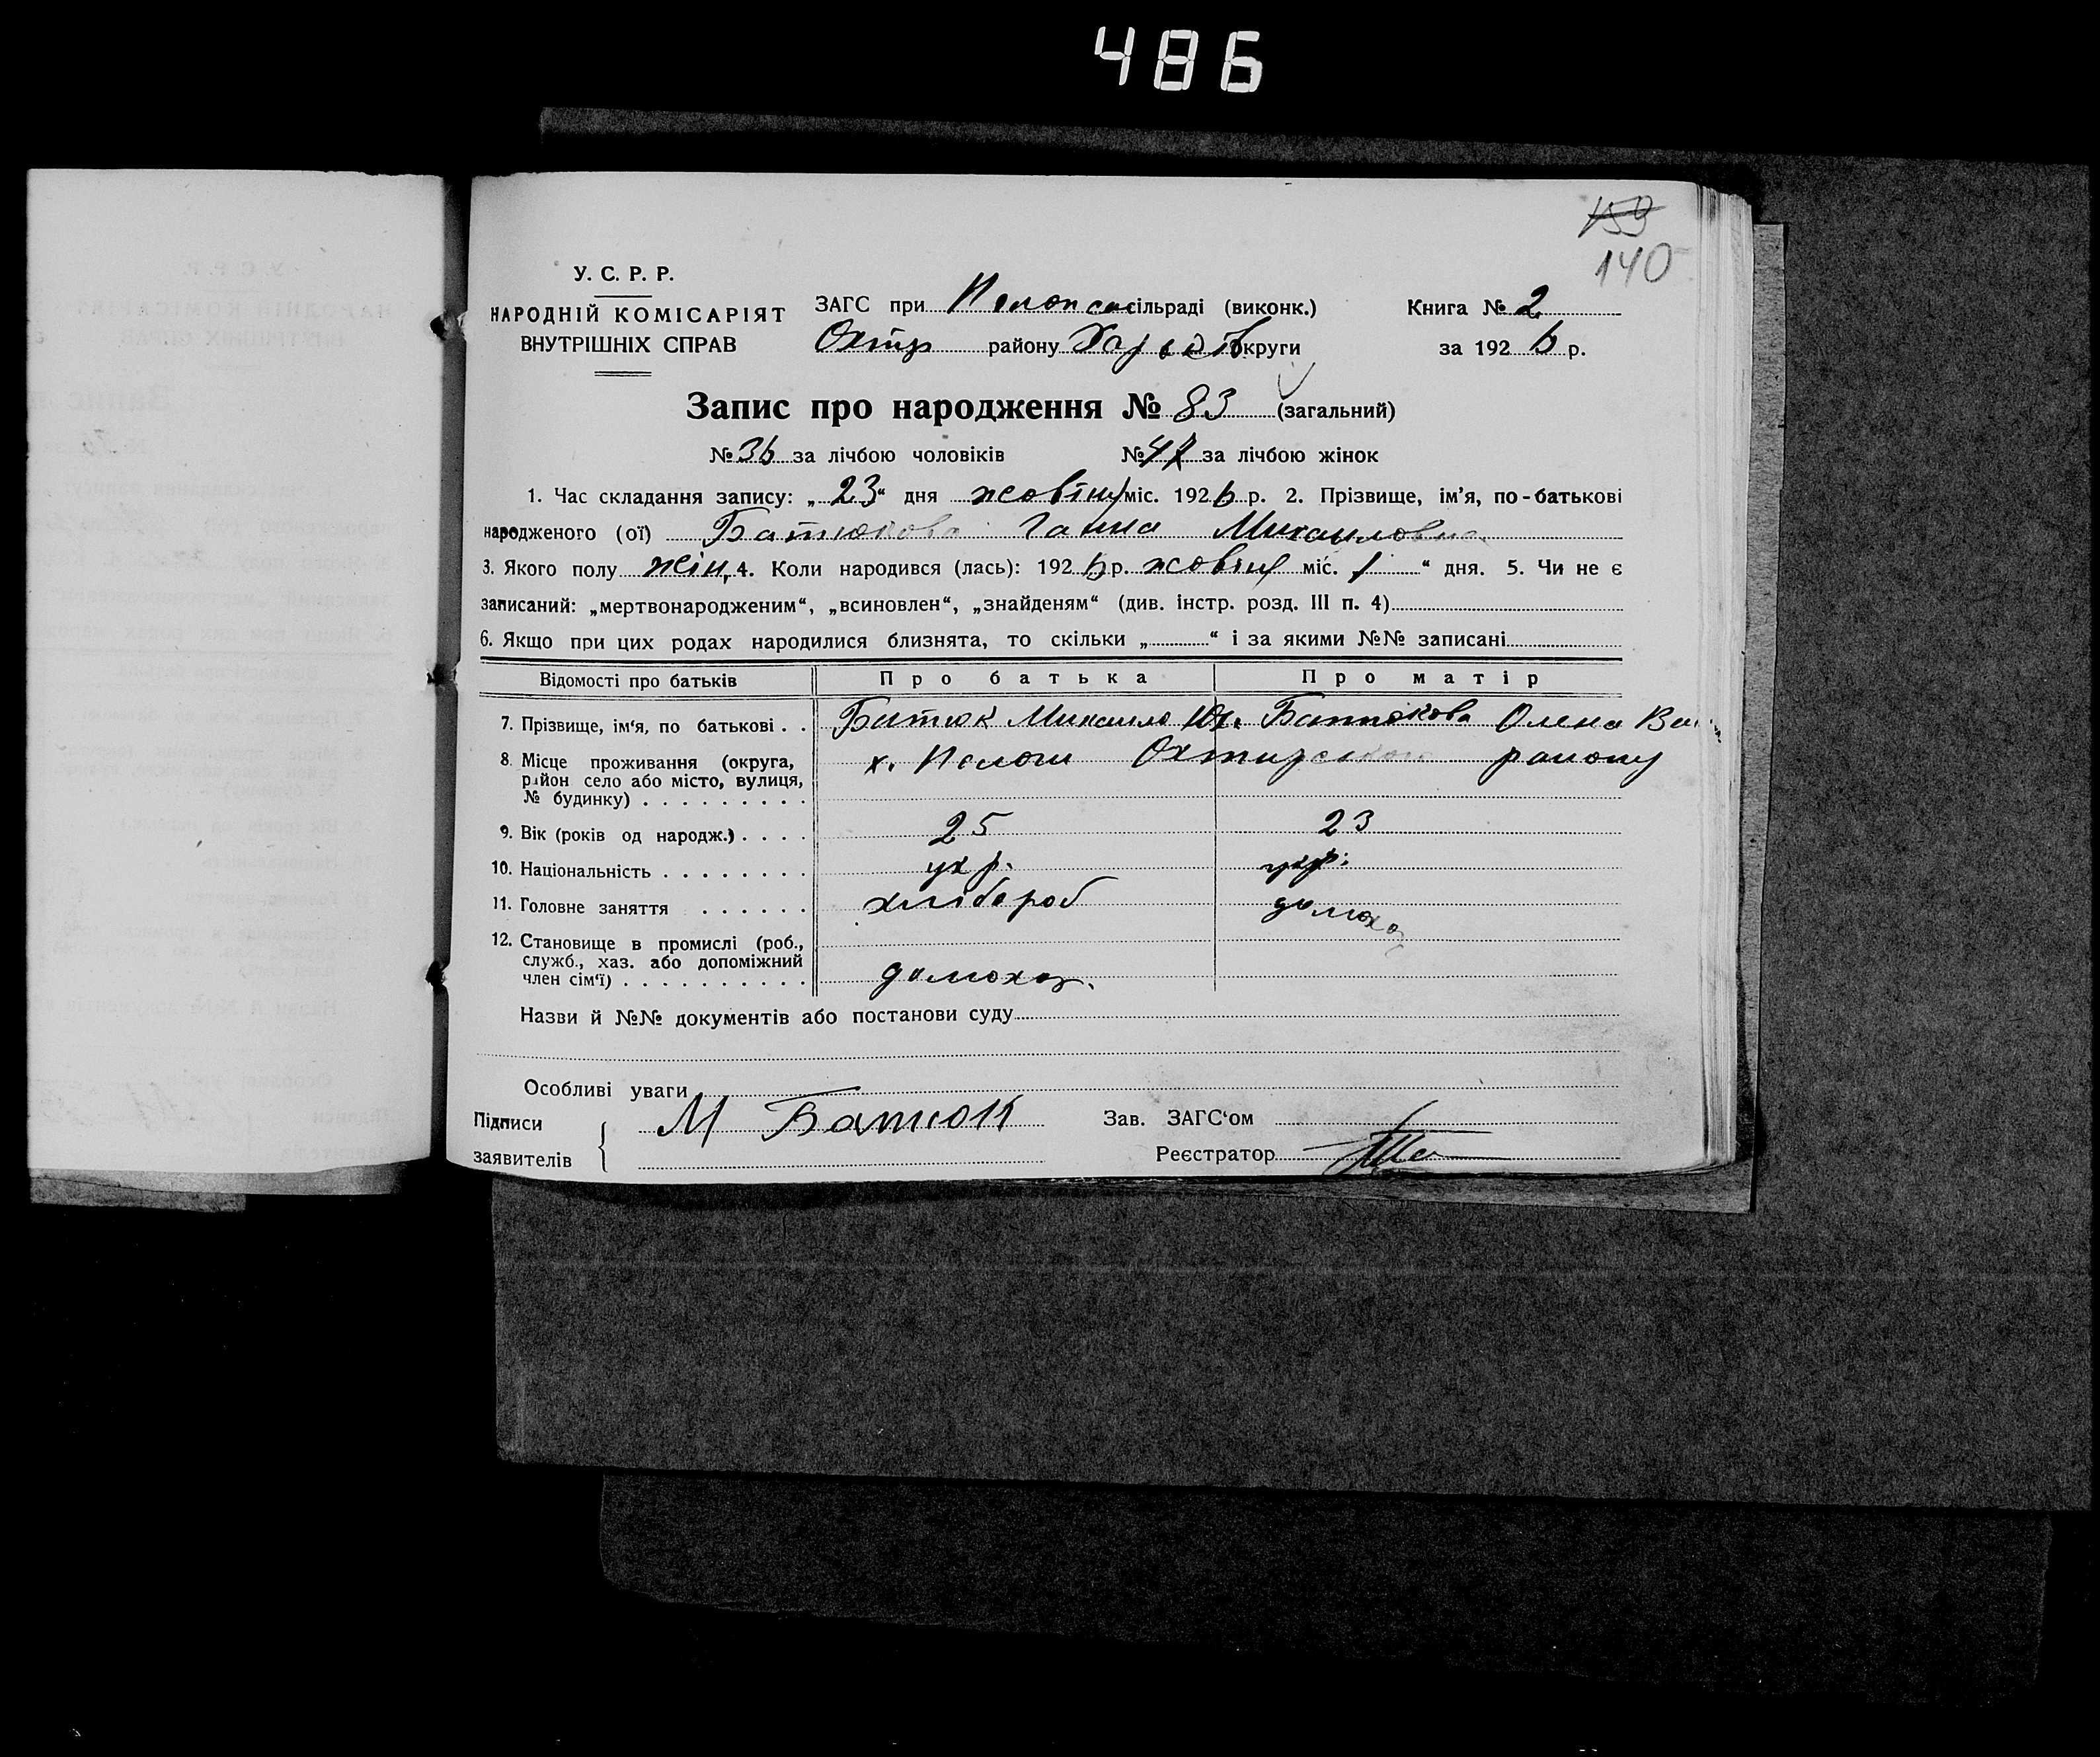 486
153
140
У. С. Р. Р.
НАРОДНІЙ КОМІСАРІЯТ
ВНУТРІШНІХ СПРАВ
ЗАГС при сільраді (виконк.)
Охтир району Харьків округи
Книга № 2
за 1926 р.
Запис про народження № 83 (загальний)
№ 36 за лічбою чоловіків № 47 за лічбою жінок
1. Час складання запису: „23“ дня жовтня міс. 1926 р. 2. Прізвище, ім’я, по-батькові
народженого (ої) Батюкова Ганна Михаиловна
3. Якого полу жін, 4. Коли народився (лась): 1926 р. жовтня міс. 1 “ дня. 5. Чи не є
записаний: „мертвонародженим“, „всиновлен“, „знайденям“ (див. інстр. розд. III п. 4)
6. Якщо при цих родах народилися близнята, то скільки „ “ і за якими №№ записані
Відомості про батьків Про батька Про матір
7. Прізвище, ім‘я, по батькові . . Батюк Михаило Юх. Батюкова Олена Ва
8. Місце проживання (округа, х. Охтирського району
район село або місто, вулиця,
№ будинку) . . . . . . . . .
9. Вік (років од народж.) . . . . 25 23
10. Національність . . . . . . . . укр. укр.
11. Головне заняття . . . . . . хлібороб домохоз
12. Становище в промислі (роб.,
служб., хаз. або допоміжний
член сім‘ї) . . . . . . . . . . домохоз.
Назви й №№ документів або постанови суду
Особливі уваги
Підписи
заявителів
М Батюк
Зав. ЗАГС‘ом
Реєстратор